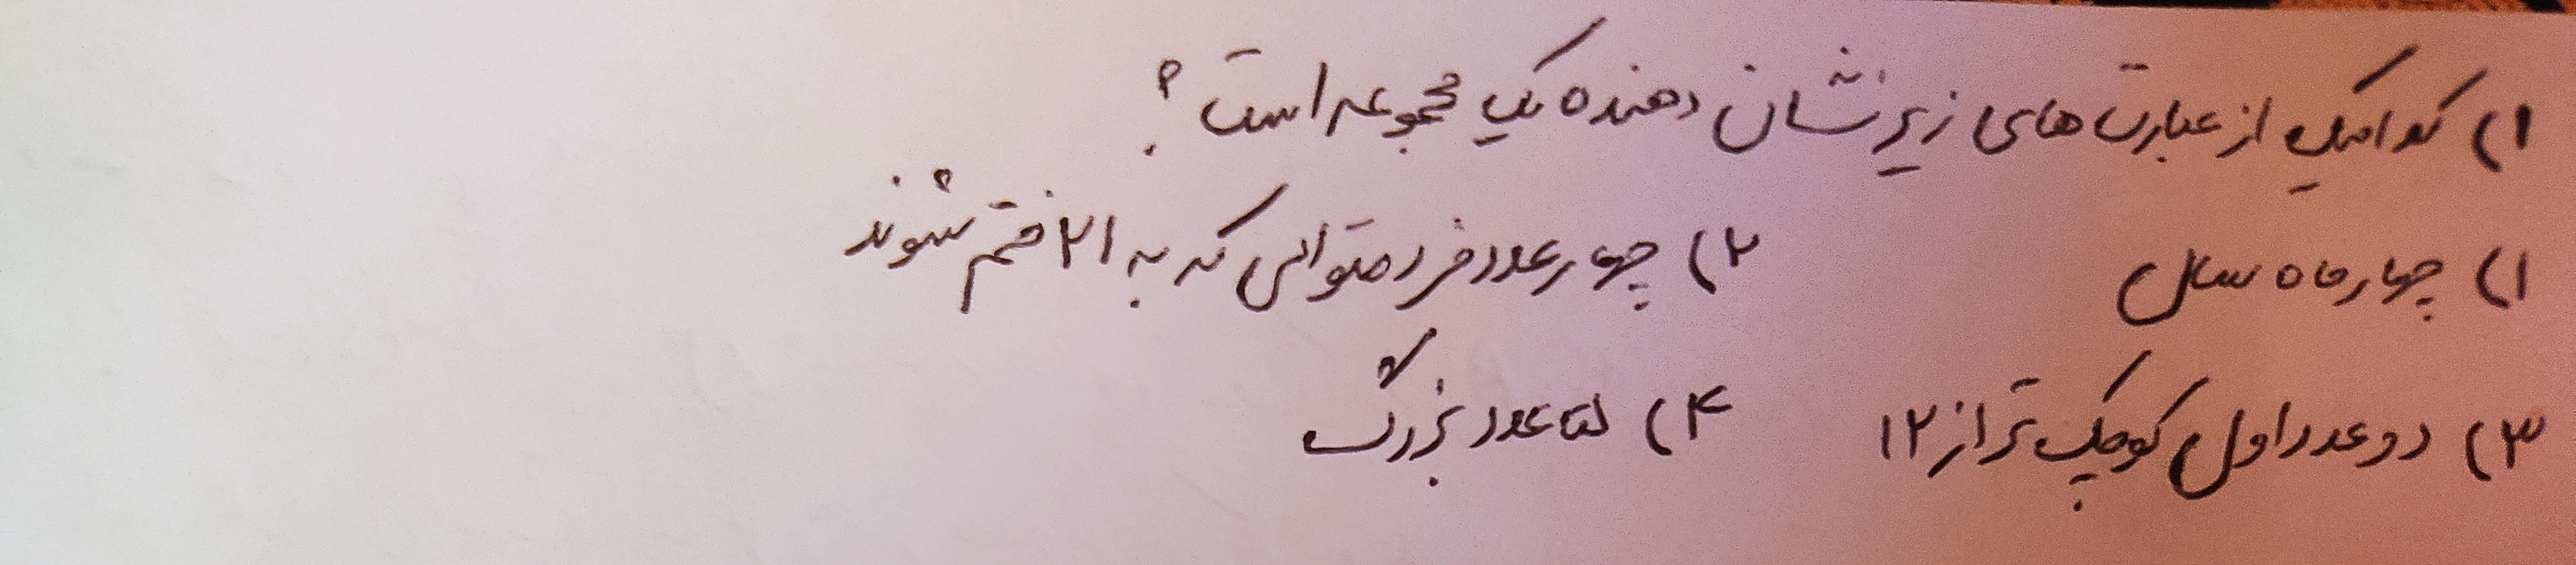 ۱) کدامیک از عبارت های زیر نشان دهنده یک مجموعه است؟
۱) چهار ماه سال ۲) چهار عدد فرد متوالی که به ۲۱ ختم شوند
۳) دو عدد اول کوچک تر از ۱۲ ۴) عدد بزرگ